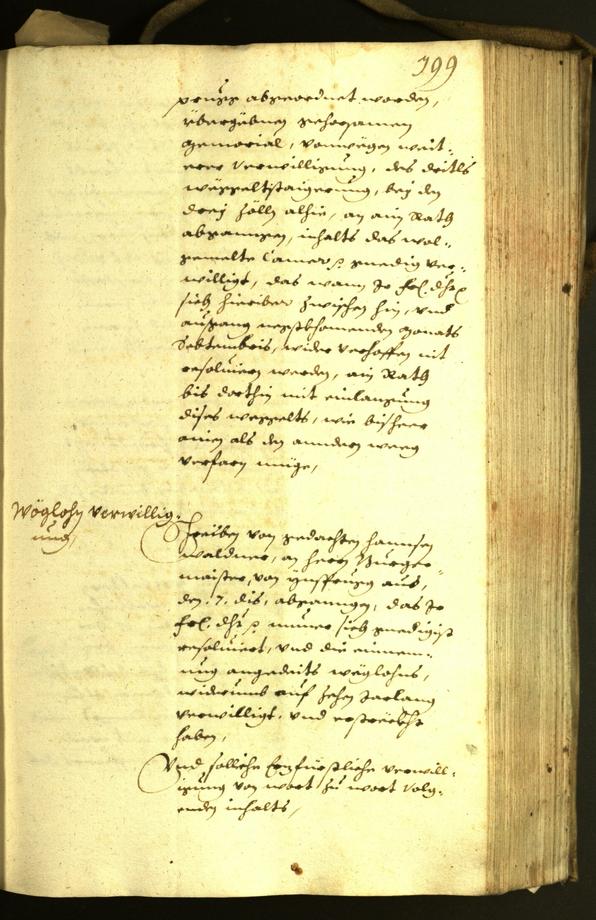 199
prugg abgeordnet worden,
übergebnen gehorsamen
memorial, vonwegen weit-
erer verwilligung, des dritls
weggeltstaigerung, bej den
drej zölln alhie, an ain Rath
abgangen, inhalts das wol-
gemelte Camer p. gnedig ver-
willigt, das wann Ir frl. dhrt
sich hieriber zwischen hin, und
außgang negstkhomenden monats
Septembris, wider verhoffen nit
resolviern werden, ain Rath
bis dorthin mit einlangung
dises weggelts, wie bisheer
ainen als den anndern weeg
verfarn müge,
Wöglohn verwillig-
ung,
Schreiben von gedachten Hannsen
waldner, an herrn Burger-
maister, von Ynsprugg aus,
den .7. dis, abgangen, das Ir
frl. dhrt p. numer sich gnedigist
resolviert, und die einnem-
ung angedeits weglohns,
widerumb auf zehen Jarlang
verwilligt, und erstreckht
haben,
Und solliche Ertzfürstliche verwill-
igung von wort zu wort volg-
enden inhalts,